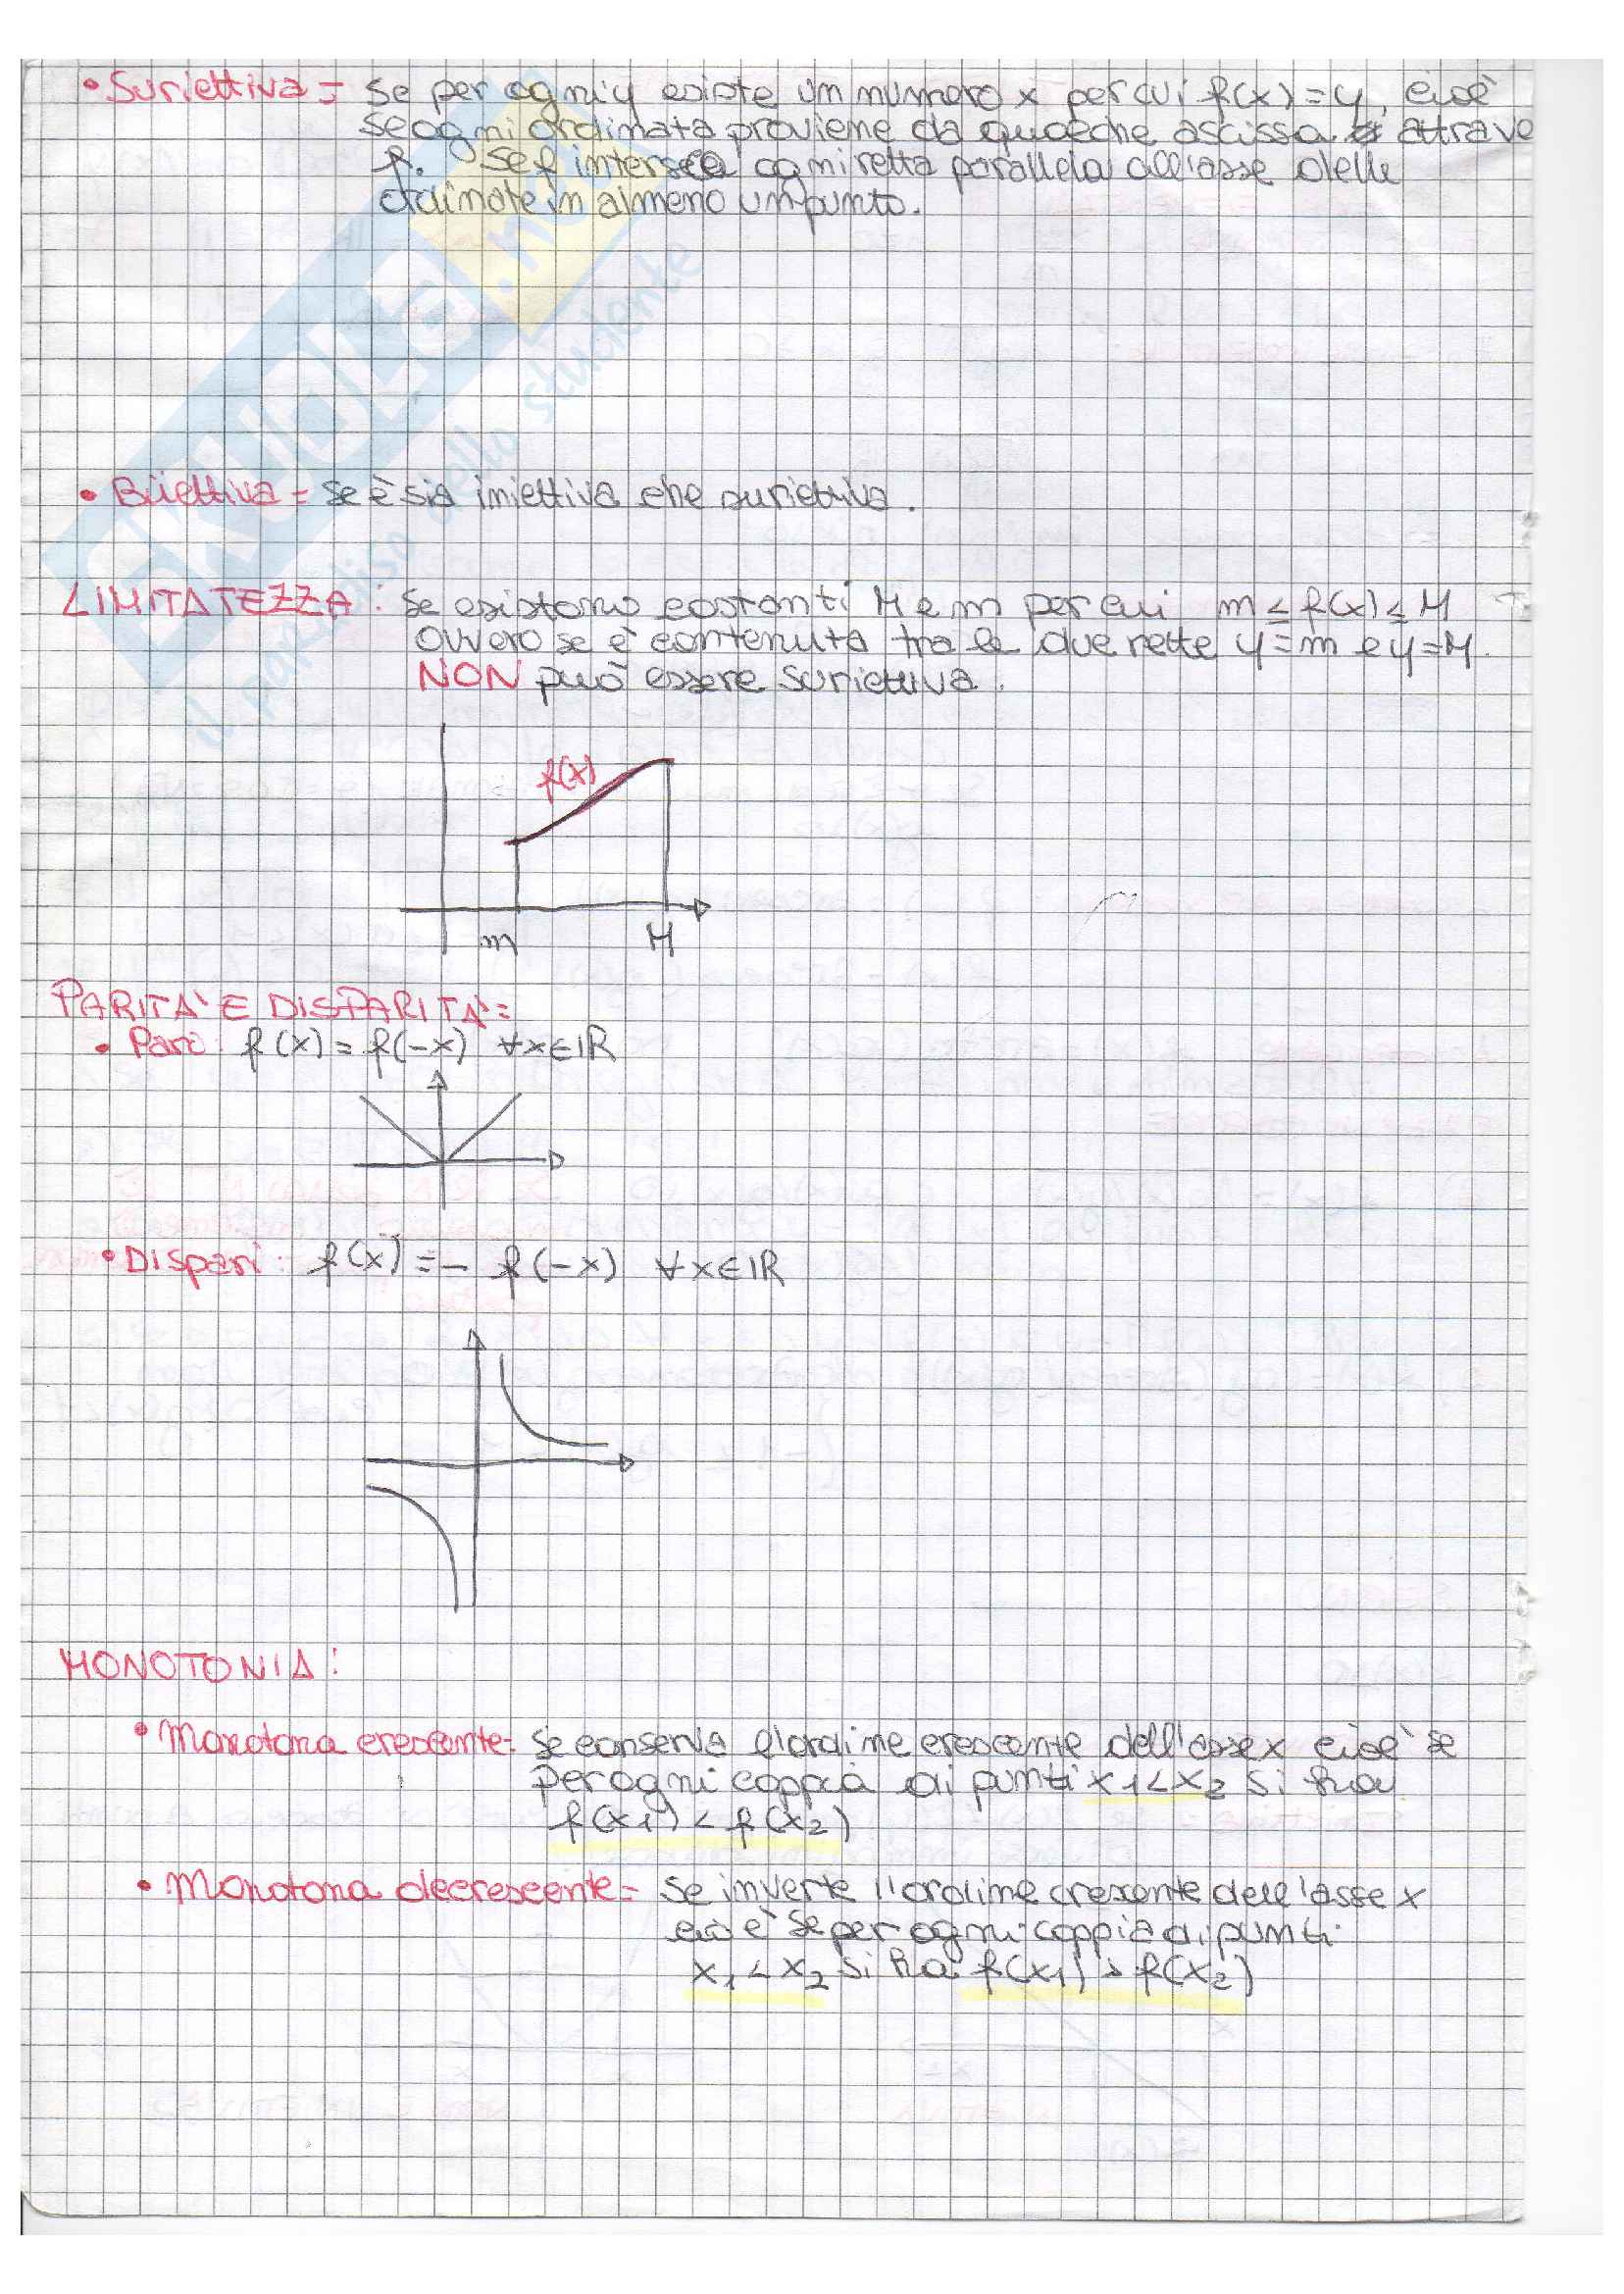 • Suriettiva = se per ogni y esiste un numero x per cui f(x) = y, cioè
se ogni ordinata proviene da qualche ascissa attrave
f. Se f interseca ogni retta parallela all'asse delle
ordinate in almeno un punto.
SKUOLA.net
il paradiso dello studente
• Biiettiva = se è sia iniettiva che suriettiva.
LIMITATEZZA: se esistono costanti M e m per cui m ≤ f(x) ≤ M
ovvero se è contenuta tra le due rette y = m e y = M.
NON può essere suriettiva.
f(x)
m M
PARITA' E DISPARITA' =
• Pari: f(x) = f(-x) ∀x∈ℝ
• Dispari: f(x) = - f(-x) ∀x∈ℝ
MONOTONIA:
• Monotona crescente = se conserva l'ordine crescente dell'asse x cioè se
per ogni coppia di punti x₁ < x₂ si ha
f(x₁) < f(x₂)
• Monotona decrescente = se inverte l'ordine crescente dell'asse x
cioè se per ogni coppia di punti
x₁ < x₂ si ha f(x₁) > f(x₂)